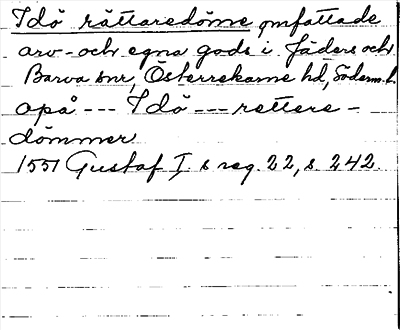 Idö rättaredöme omfattade
arv- och egna gods i Jäders och
Barva snr, Österrekarne hd, Söderm. l.
opå --- Idö --- rettere-
dömmer
1551 Gustaf I. s reg. 22, s. 242.